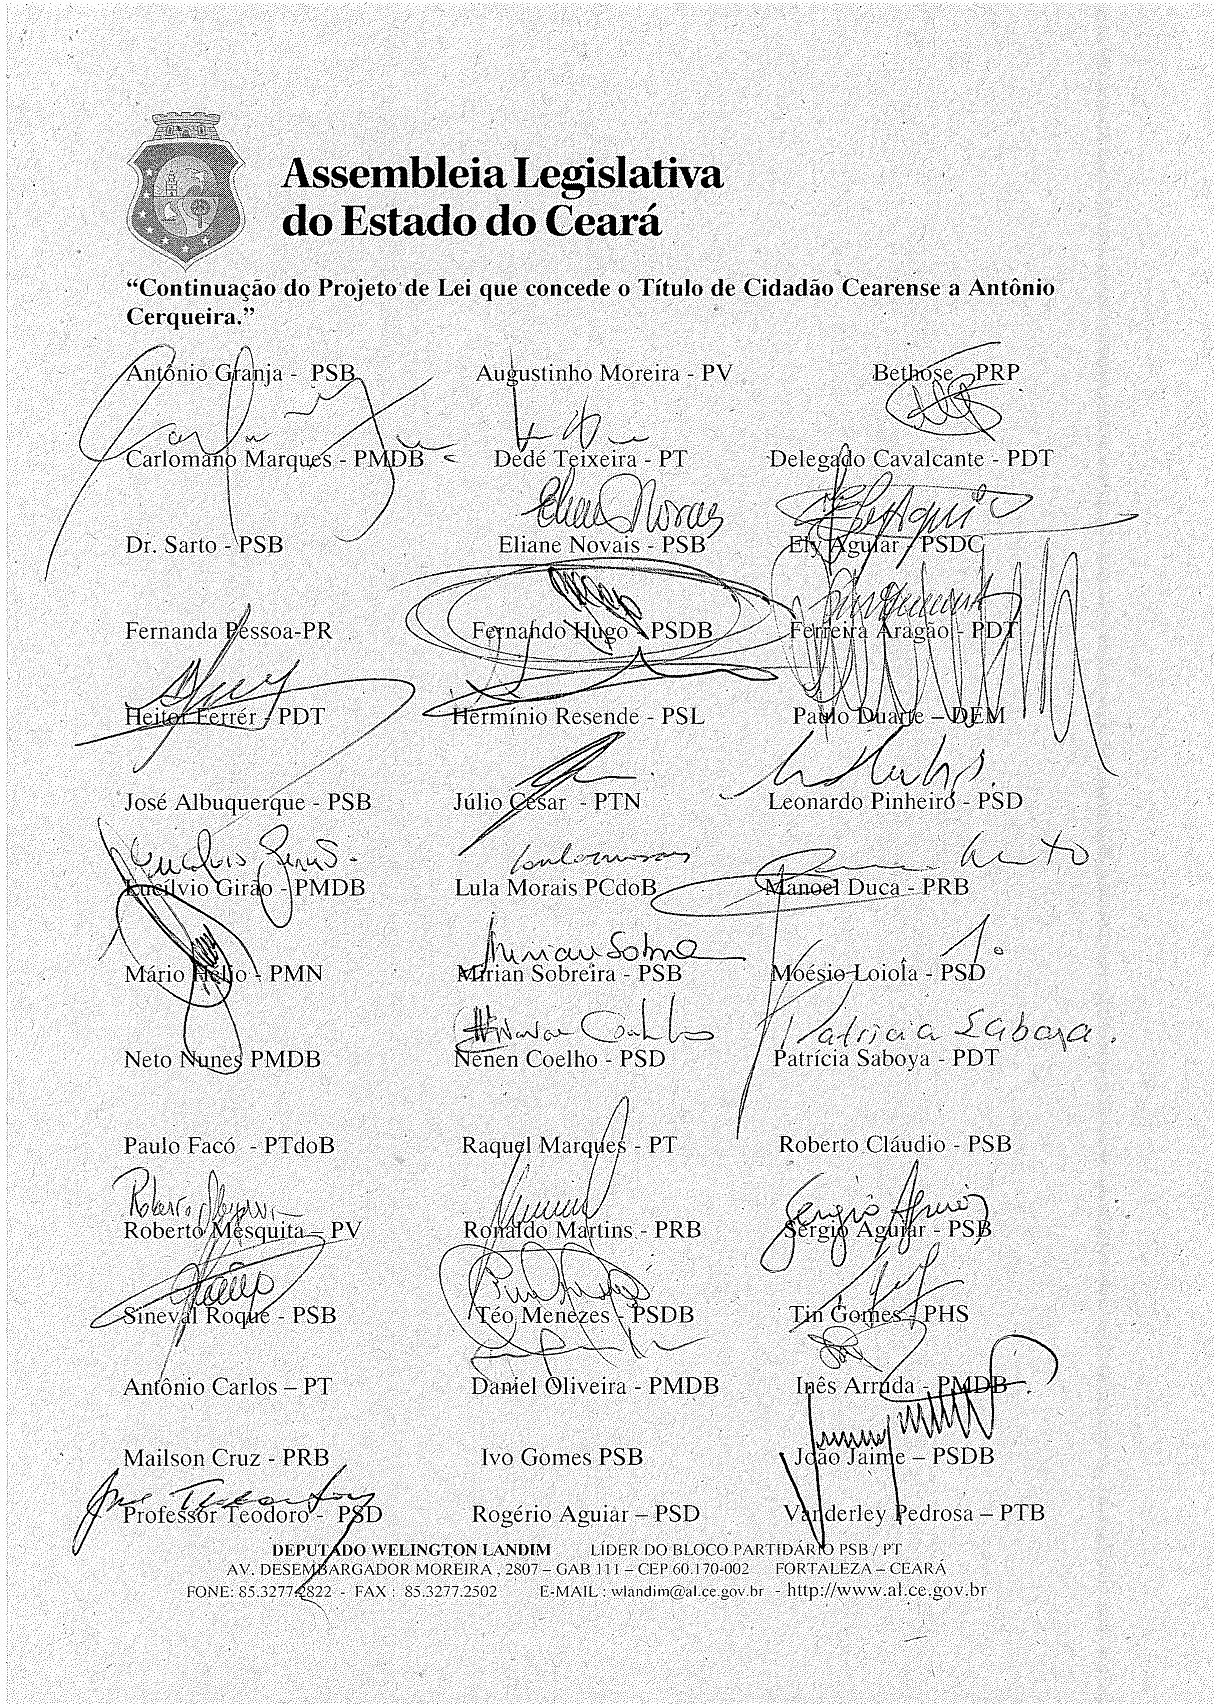 Assembleia Legislativa
do Estado do Ceará
“Continuação do Projeto de Lei que concede o Título de Cidadão Cearense a Antônio
Cerqueira.”
Antônio Granja - PSB Augustinho Moreira - PV Bethose PRP
Carlomano Marques - PMDB Dedé Teixeira - PT Delegado Cavalcante - PDT
Eliane Novais
Dr. Sarto - PSB Eliane Novais - PSB Ely Aguiar - PSDC
Fernanda Pessoa-PR Fernando Hugo - PSDB Ferreira Aragão - PDT
Heitor Ferrér - PDT Hermínio Resende - PSL Paulo Duarte – DEM
José Albuquerque - PSB Júlio César - PTN Leonardo Pinheiro - PSD
Lucílvio Girão - PMDB Lula Morais PCdoB Manoel Duca - PRB
Mirian Sobre
Mário Hélio - PMN Mirian Sobreira - PSB Moésio Loiola - PSD
Coelho Patricia Saboya.
Neto Nunes PMDB Nenen Coelho - PSD Patrícia Saboya - PDT
Paulo Facó - PTdoB Raquel Marques - PT Roberto Cláudio - PSB
Roberto Sergio Aguiar
Roberto Mesquita – PV Ronaldo Martins - PRB Sérgio Aguiar - PSB
Sineval Roque - PSB Téo Menezes - PSDB Tin Gomes - PHS
Antônio Carlos – PT Daniel Oliveira - PMDB Inês Arruda - PMDB
Mailson Cruz - PRB Ivo Gomes PSB João Jaime – PSDB
Professor Teodoro - PSD Rogério Aguiar – PSD Vanderley Pedrosa – PTB
DEPUTADO WELINGTON LANDIM LÍDER DO BLOCO PARTIDÁRIO PSB / PT
AV. DESEMBARGADOR MOREIRA , 2807 – GAB 111 – CEP 60.170-002 FORTALEZA – CEARÁ
FONE: 85.3277.2822 - FAX : 85.3277.2502 E-MAIL : wlandim@al.ce.gov.br - http://www.al.ce.gov.br